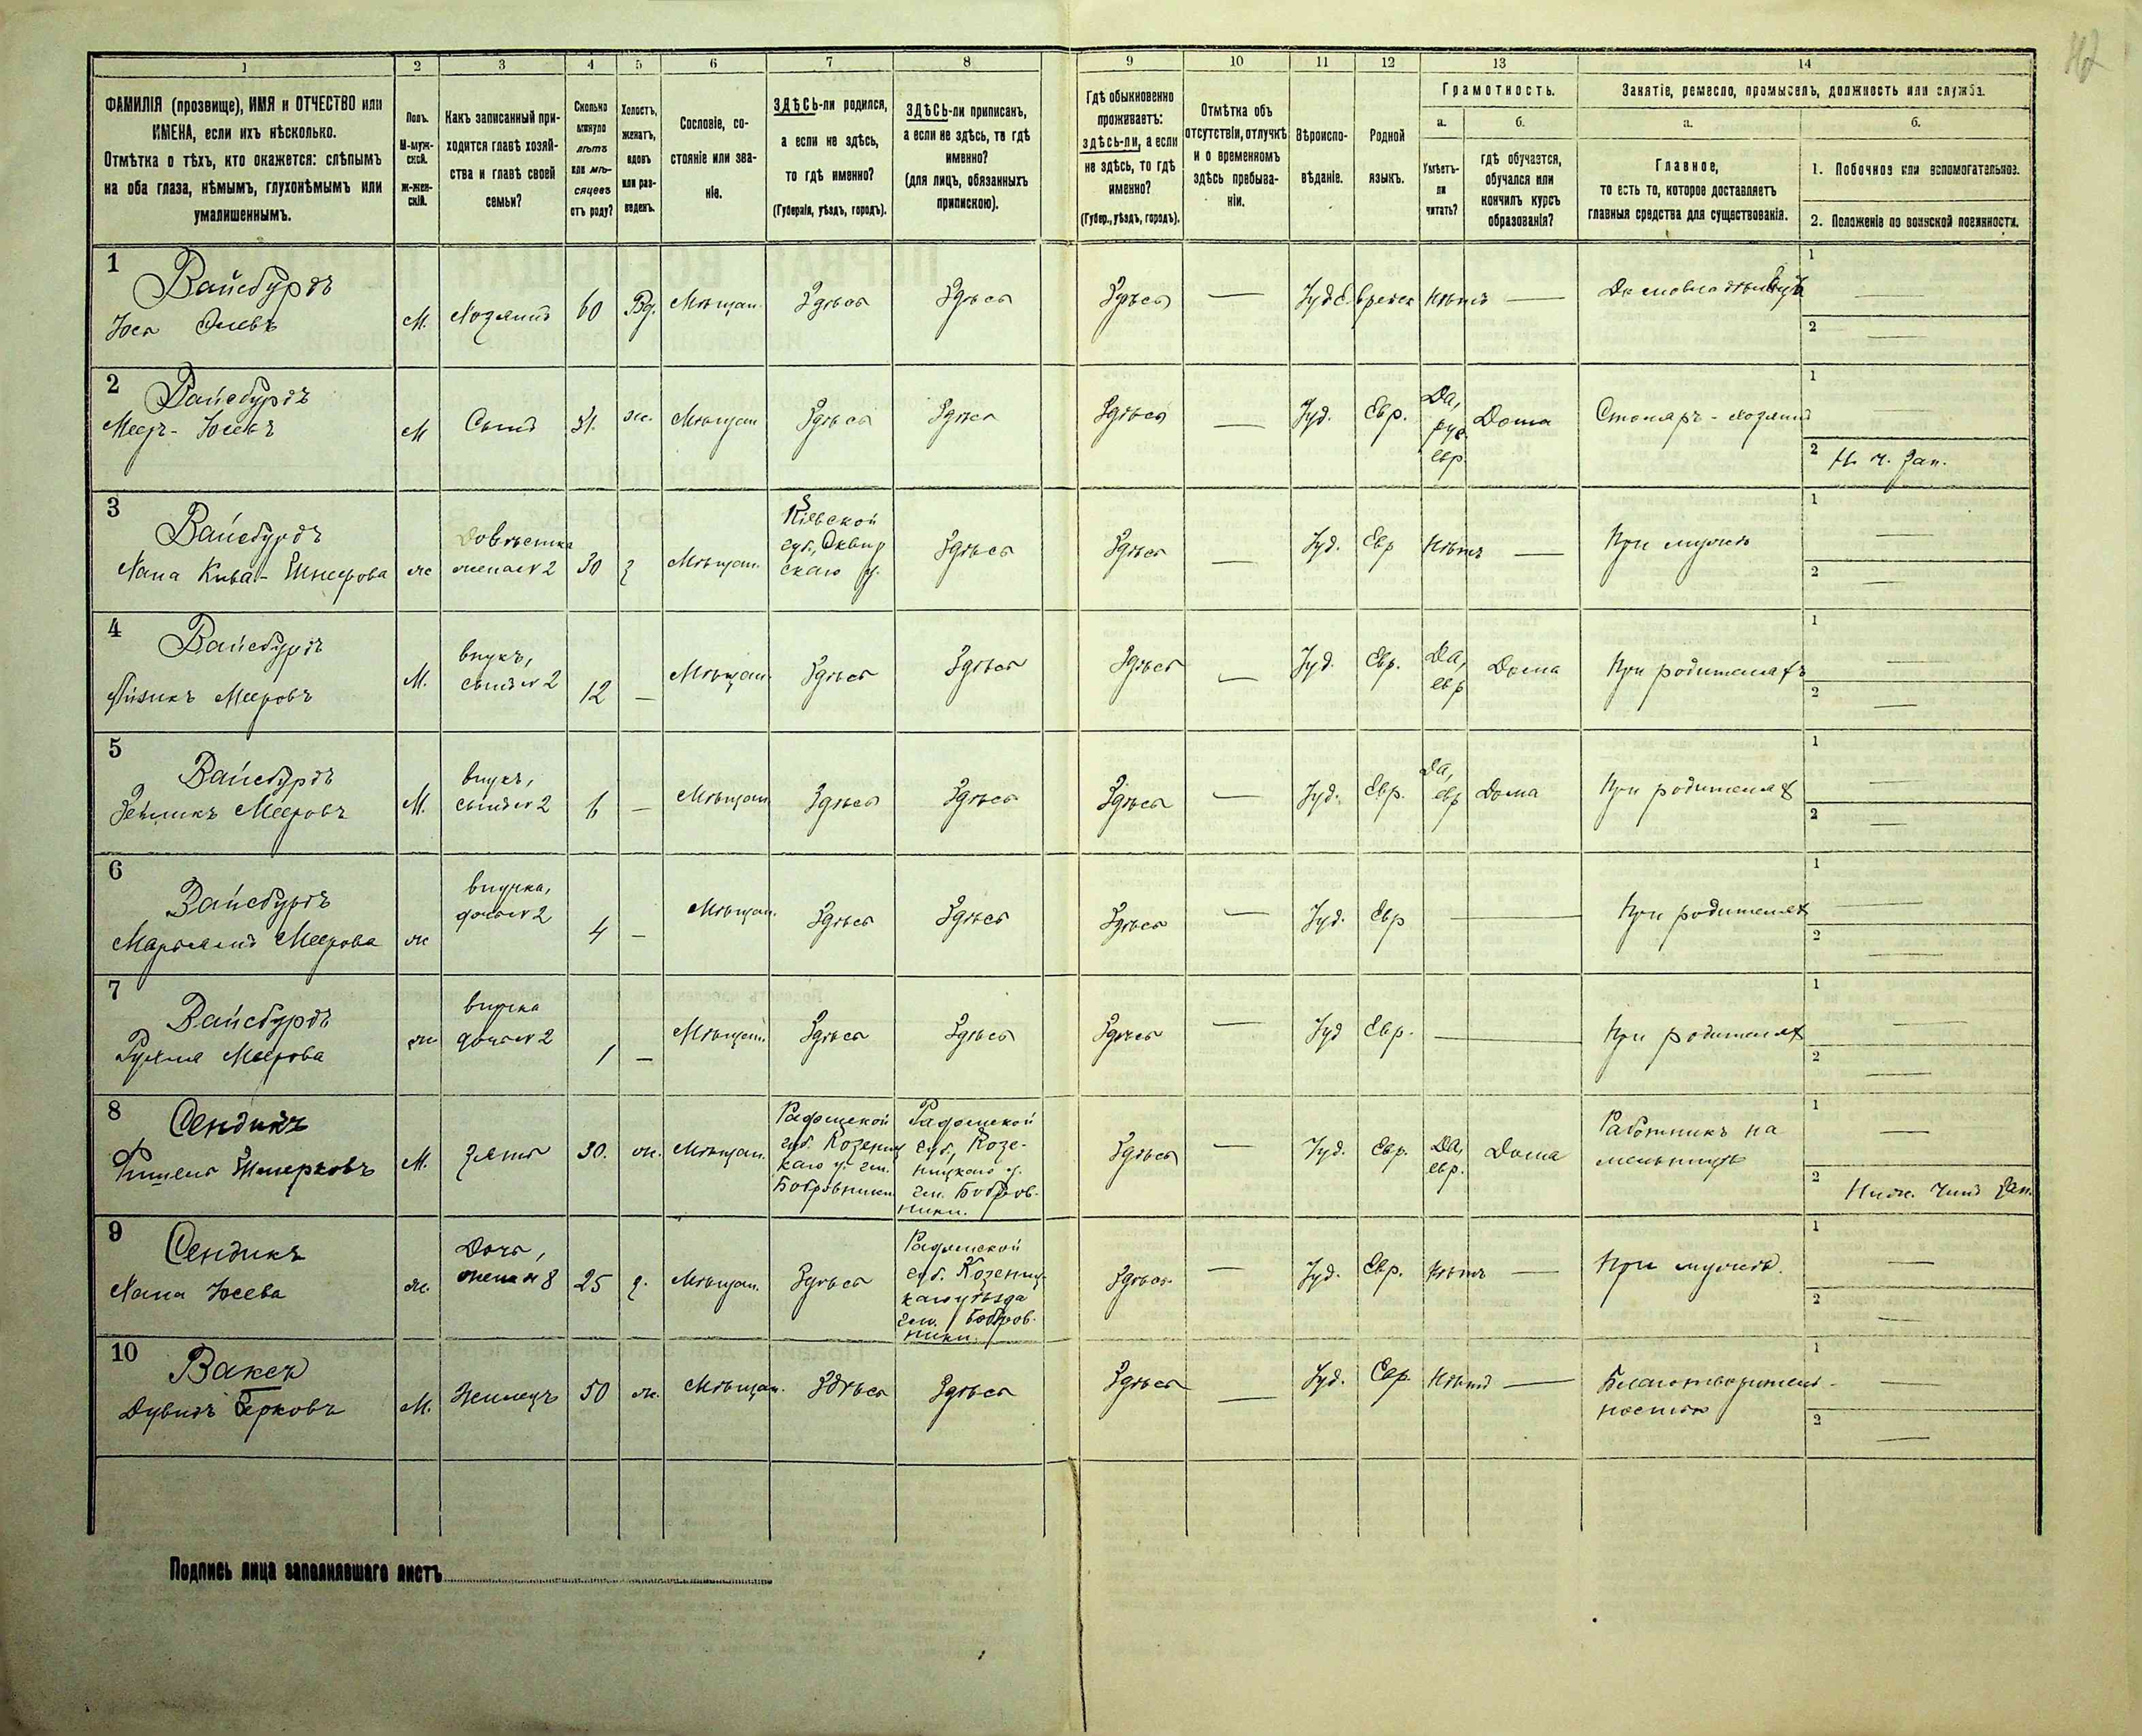 1 2 3 4 5 6 7 8 9 10 11 12 13 14
ФАМИЛІЯ (прозвище), ИМЯ и ОТЧЕСТВО или
ИМЕНА, если ихъ нѣсколько.
Отмѣтка о тѣхъ, кто окажется: слѣпымъ
на оба глаза, нѣмымъ, глухонѣмымъ или
умалишеннымъ.
Полъ.
М-муж-
ской.
Ж-жен-
скій.
Какъ записанный при-
ходится главѣ хозяй-
ства и главѣ своей
семьи?
Сколько
минуло
лѣтъ
или мѣ-
сяцевъ
отъ роду?
Холостъ,
женатъ,
вдовъ
или раз-
веденъ.
Сословіе, со-
стояніе или зва-
ніе.
ЗДѢСЬ-ли родился,
а если не здѣсь,
то гдѣ именно?
(Губернія, уѣздъ, городъ).
ЗДѢСЬ-ли приписанъ,
а если не здѣсь, то гдѣ
именно?
(для лицъ, обязанныхъ
припискою).
Гдѣ обыкновенно
проживаетъ:
здѣсь-ли, а если
не здѣсь, то гдѣ
именно?
(Губер., уѣздъ, городъ).
Отмѣтка объ
отсутствіи, отлучкѣ
и о временномъ
здѣсь пребыва-
ніи.
Вѣроиспо-
вѣданіе.
Родной
языкъ.
Грамотность.
а.
Умѣетъ-
ли
читать?
б.
гдѣ обучается,
обучался или
кончилъ курсъ
образованія?
Занятіе, ремесло, промыселъ, должность или служба.
а.
Главное,
то есть то, которое доставляетъ
главныя средства для существованія.
б.
1. Побочное или вспомогательное.
2. Положеніе по воинской повинности.
1 Вайсбурдъ
М. Хозяинъ 60 Вд. Мѣщан. Здѣсь Здѣсь Здѣсь — Іуд. Еврейск Нѣтъ — Домовладѣлецъ 1 — 2 —
2 Вайсбурдъ
Меер- Юсевъ М Сынъ 31. ж. Мѣщан Здѣсь Здѣсь Здѣсь — Іуд. Евр. Да, рус евр. Дома Столяръ - хозяинъ 1 — 2 Н. ч. Зап.
3 Вайсбурдъ
Хана Кива- Шмерова ж невѣстка
жена № 2 30 З Мѣщан. Кіевской
губ., Сквир
скаго у. Здѣсь Здѣсь — Іуд. Евр Нѣтъ — При мужѣ 1 — 2 —
4 Вайсбурдъ
Айзикъ Мееровъ М. внукъ,
сынъ № 2 12 — Мѣщан. Здѣсь Здѣсь Здѣсь — Іуд. Евр. Да, евр Дома При родителяхъ 1 — 2 —
5 Вайсбурдъ
Зейликъ Мееровъ М. внукъ,
сынъ № 2 6 — Мѣщан Здѣсь Здѣсь Здѣсь — Іуд. Евр. Да, евр Дома При родителях 1 — 2 —
6 Вайсбурдъ
Меерова ж внучка,
дочь № 2 4 — Мѣщан. Здѣсь Здѣсь Здѣсь — Іуд. Евр — При родителях 1 — 2 —
7 Вайсбурдъ
Рухля Меерова ж внучка
дочь № 2 1 — Мѣщан. Здѣсь Здѣсь Здѣсь — Іуд Евр. — При родителях 1 — 2 —
8 Сендикъ
Фишель Шмерковъ М. Зять 30. ж. Мѣщан. Радомской
губ. Козениц
каго у. гм.
Бобровники Радомской
губ., Козе-
ницкаго у.
гм. Бобров-
ники. Здѣсь — Іуд. Евр. Да, евр. Дома Работникъ на
мельницѣ 1 — 2 Нижн. чинъ Зап.
9 Сендикъ
Хана Юсева ж. Дочь,
жена № 8 25 З. Мѣщан. Здѣсь Радомской
губ. Козениц-
каго уѣзда
гм. Бобров-
ники. Здѣсь — Іуд. Евр. Нѣтъ — При мужѣ. 1 — 2 —
10 Ваксъ
Дувидъ Берковъ М. Жилецъ 50 ж. Мѣщан. Здѣсь Здѣсь Здѣсь — Іуд. Евр. Нѣтъ — Благотворитель-
ностью 1 — 2 —
Подпись лица заполнявшаго листъ